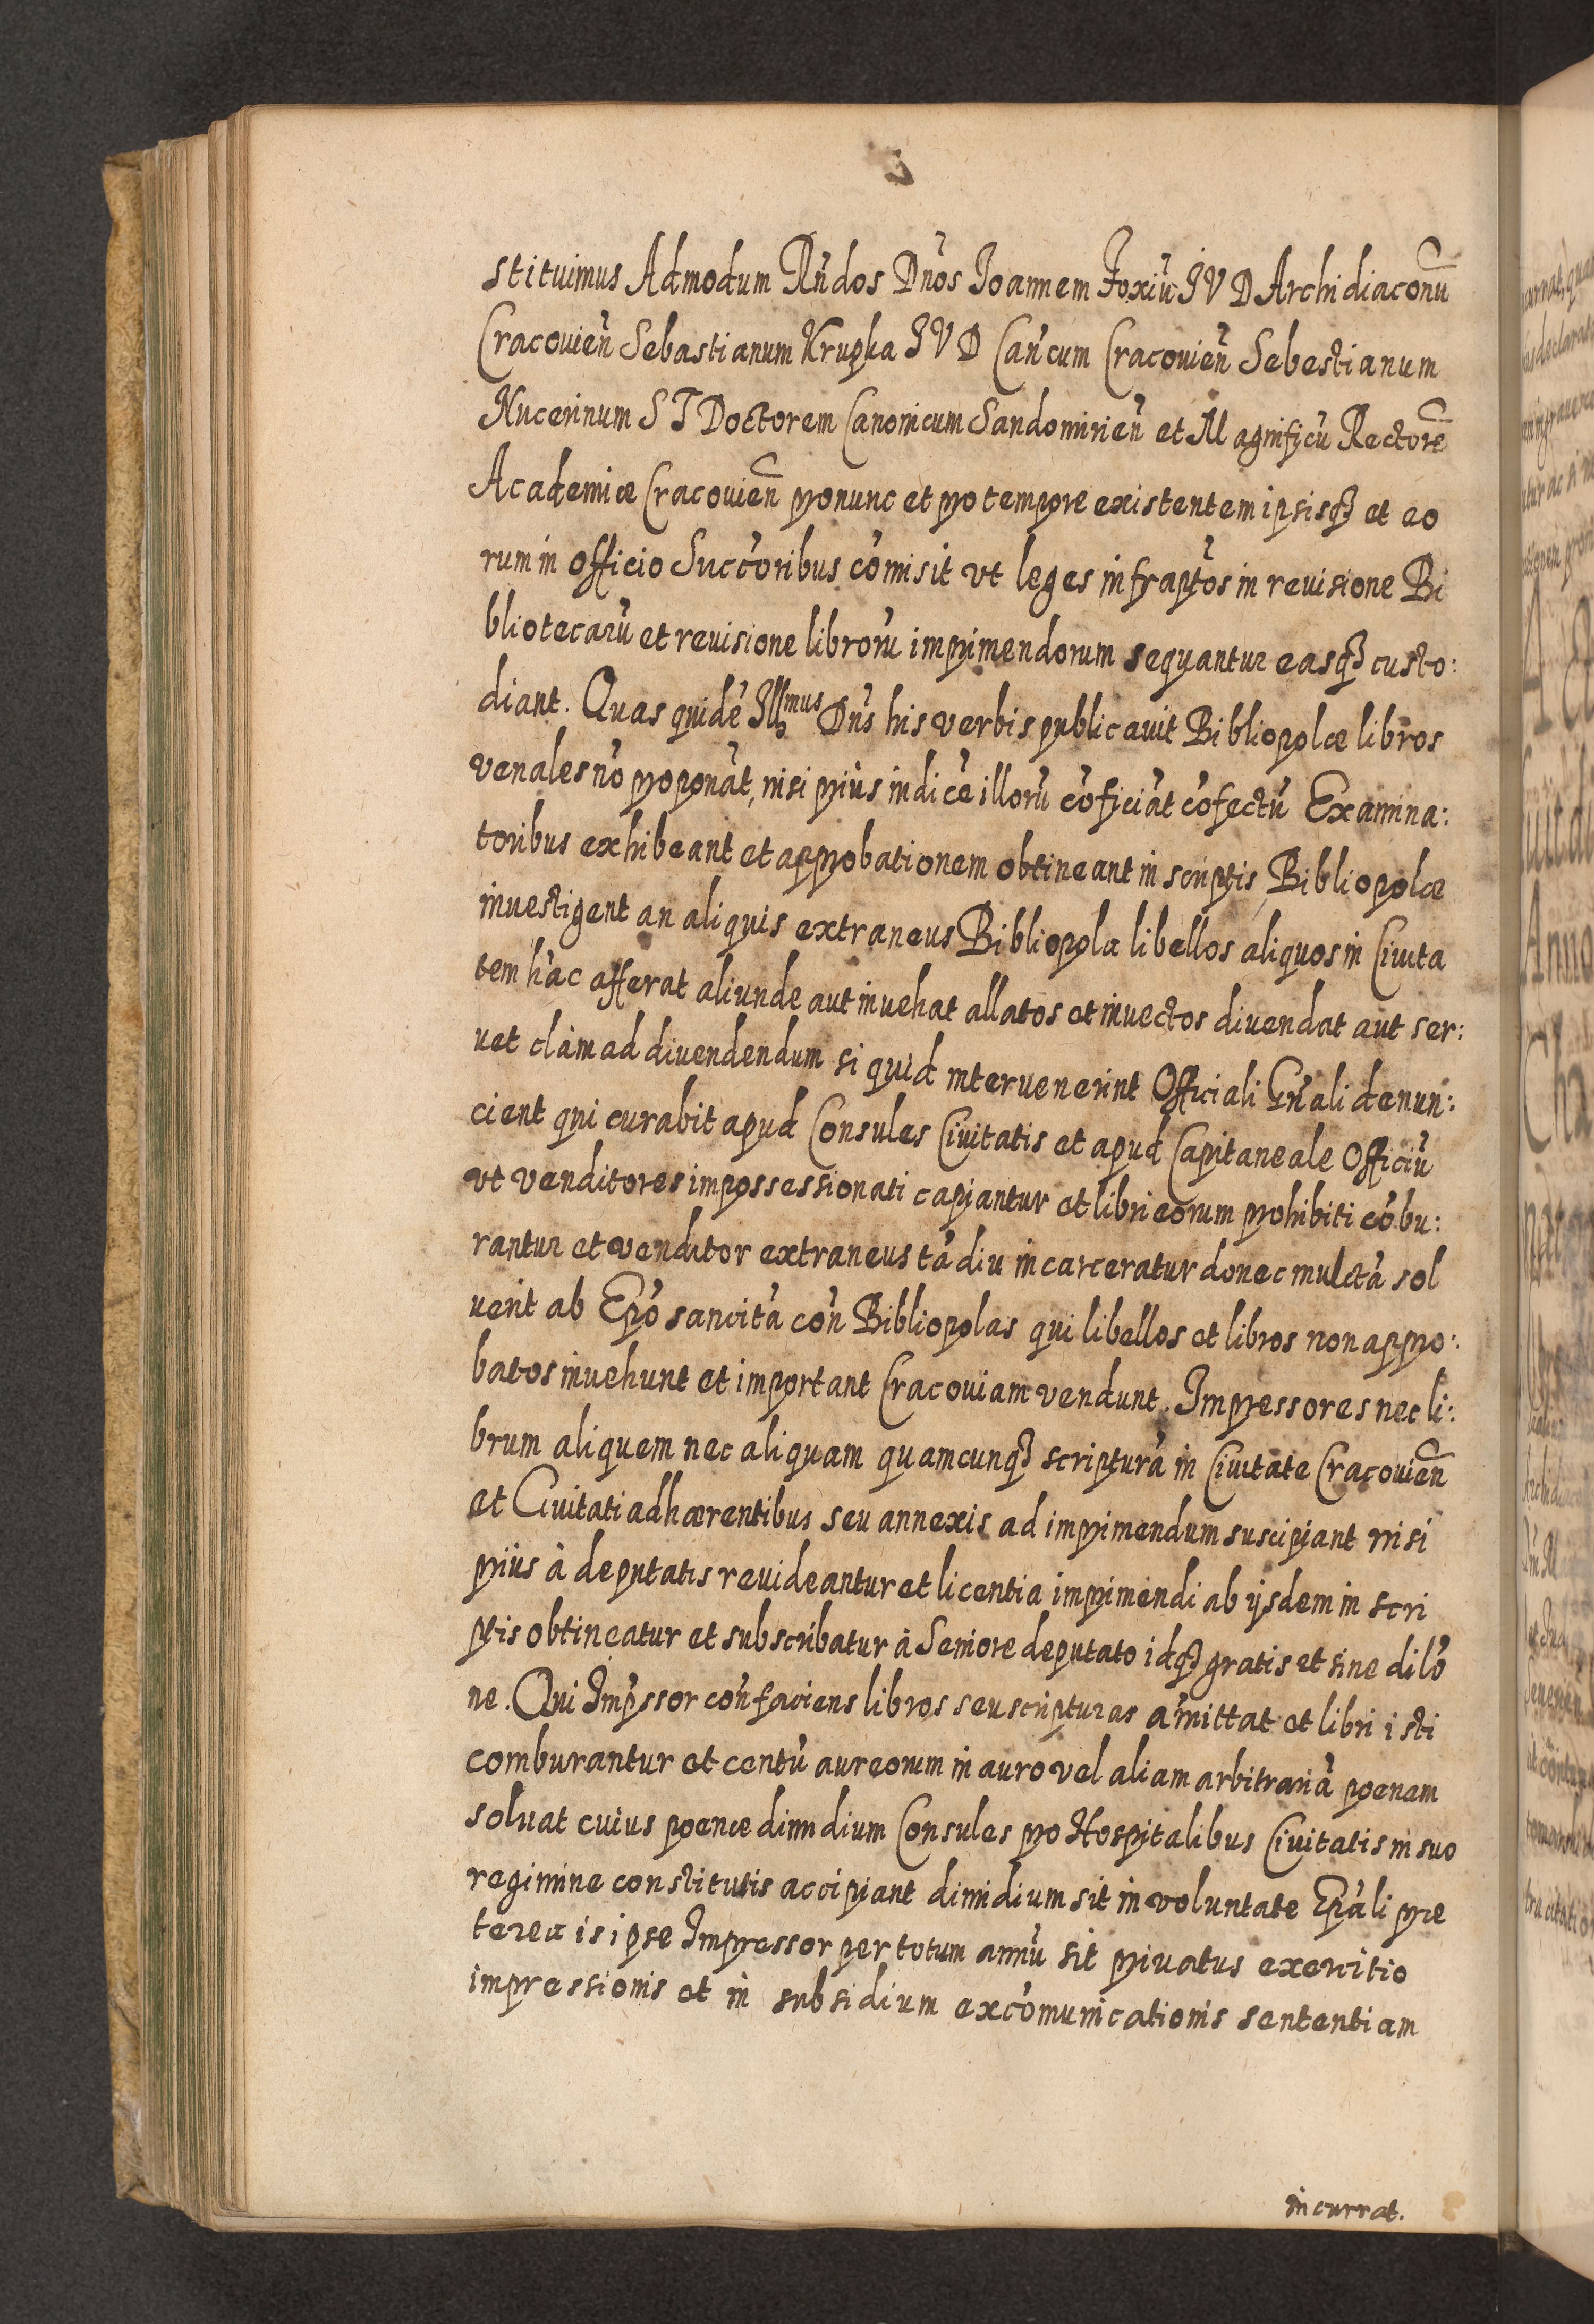 stituimus Admodum Rñdos Dños Joannem Foxiũ JVD Archidiaconũ
Cracouieñ Sebastianum Krupka JVD Cañcum Cracouieñ Sebestianum
Nucerinum ST Doctorem Canonicum Sandomirieñ et Magnificũ Rectorẽ
Academiæ Cracouieñ pro nunc et pro tempore existentem ipsisq₃ et eo
rum in officio Succ̃oribus cõmisit vt leges infrap̃tos in reuisione Bi
bliotecarũ et reuisione librorũ imprimendorum sequantur easq₃ custo:
diant. Quas quidẽ Ill^mus Dñs his verbis publicauit Bibliopolæ libros
venales nõ proponãt, nisi priùs indicẽ illorũ cõficiãt cõfectũ Examina:
toribus exhibeant et approbationem obtineant in scriptis, Bibliopolæ
inuestigent an aliquis extraneus Bibliopola libellos aliquos in Ciuita
tem hãc afferat aliunde aut inuehat allatos et inuectos diuendat aut ser:
uet clàm ad diuendendum si quid interuenerint Officiali Gñali denun:
cient qui curabit apud Consules Ciuitatis et apud Capitaneale Officiũ
vt venditores impossessionati capiantur et libri eorum prohibiti cõbu:
rantur et venditor extraneus tã diu incarceratur donec mulctã sol
uerit ab Ep̃o sancitã coñ Bibliopolas qui libellos et libros non appro:
batos inuehunt et important Cracouiam vendunt. Impressores nec li:
brum aliquem nec aliquam quamcunq₃ scripturã in Ciuitate Cracouieñ
et Ciuitati adhærentibus seu annexis ad imprimendum suscipiant nisi
priùs à deputatis reuideantur et licentia imprimendi ab ijsdem in scri
ptis obtineatur et subscribatur à Seniore deputato idq₃ gratis et sine dilõ
ne. Qui Imp̃ssor coñ faciens libros seu scripturas amittat et libri isti
comburantur et centũ aureorum in auro vel aliam arbitrariã poenam
soluat cuius poenæ dimidium Consules pro Hospitalibus Ciuitatis in suo
regimine constitutis accipiant dimidium sit in voluntate Ep̃ali præ
terea is ipse Impressor per totum annũ sit priuatus exercitio
impressionis et in subsidium excõmunicationis sententiam
incurrat.